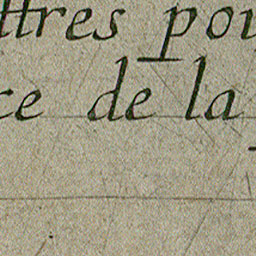 ttres pou
ce de la